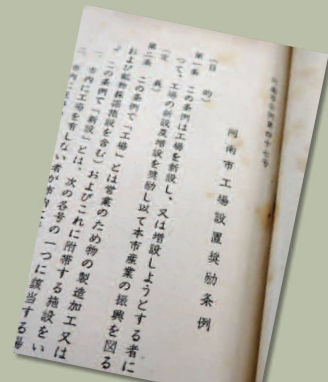 阿南市条例第四十七号
阿南市工場設置奨励条例
(目 的)
第一条 この条例は工場を新設し、又は増設しようとする者に
つて、工場の新設及増設を奨励し以て本市産業の振興を図る
(定 義)
第二条 この条例で「工場」とは営業のため物の製造加工又は
および鉱物採掘施設を含む)およびこれに附帯する施設をい
2 この条例で「新設」とは、次の各号の一つに該当する場
一 市内に工場を有しない者が市内に